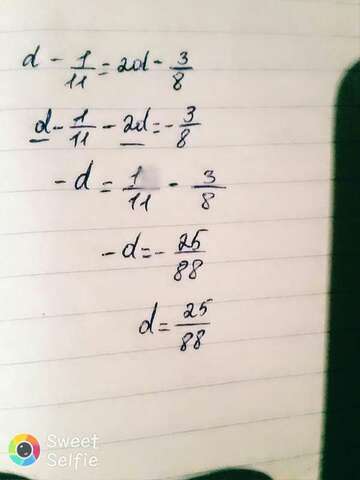 d - 1/11 = 2d - 3/8
d - 1/11 - 2d = - 3/8
- d = 1/11 - 3/8
- d = - 25/88
d = 25/88
Sweet
Selfie